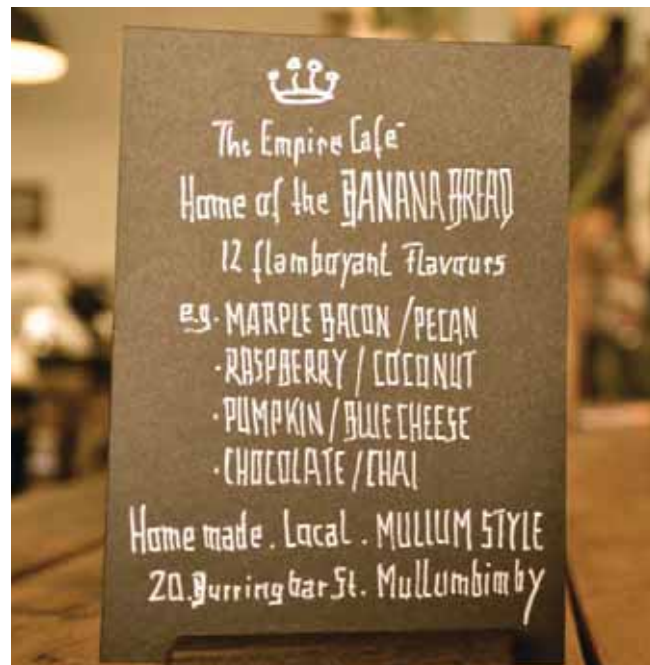 The Empire Café
Home of the BANANA BREAD
12 flamboyant Flavours
e.g. MARPLE BACON / PECAN
· RASPBERRY / COCONUT
· PUMPKIN / BLUE CHEESE
· CHOCOLATE / CHAI
Home made . Local . MULLUM STYLE
20. Burringbar St. Mullumbimby